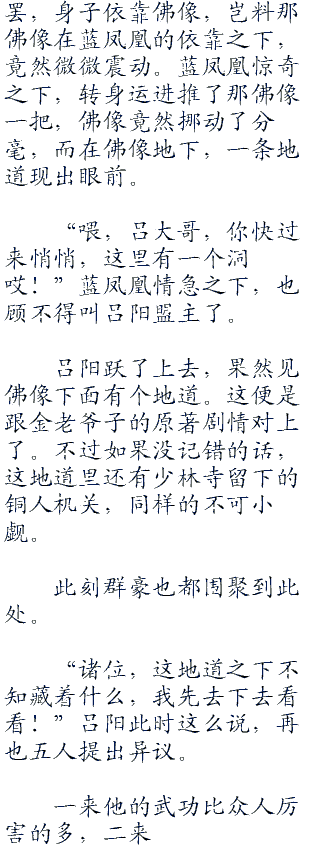 罢，身子依靠佛像，岂料那
佛像在蓝凤凰的依靠之下，
竟然微微震动。蓝凤凰惊奇
之下，转身运进推了那佛像
一把，佛像竟然挪动了分
毫，而在佛像地下，一条地
道现出眼前。
“喂，吕大哥，你快过
来悄悄，这里有一个洞
哎！”蓝凤凰情急之下，也
顾不得叫吕阳盟主了。
吕阳跃了上去，果然见
佛像下面有个地道。这便是
跟金老爷子的原著剧情对上
了。不过如果没记错的话，
这地道里还有少林寺留下的
铜人机关，同样的不可小
觑。
此刻群豪也都围聚到此
处。
“诸位，这地道之下不
知藏着什么，我先去下去看
看！”吕阳此时这么说，再
也五人提出异议。
一来他的武功比众人厉
害的多，二来